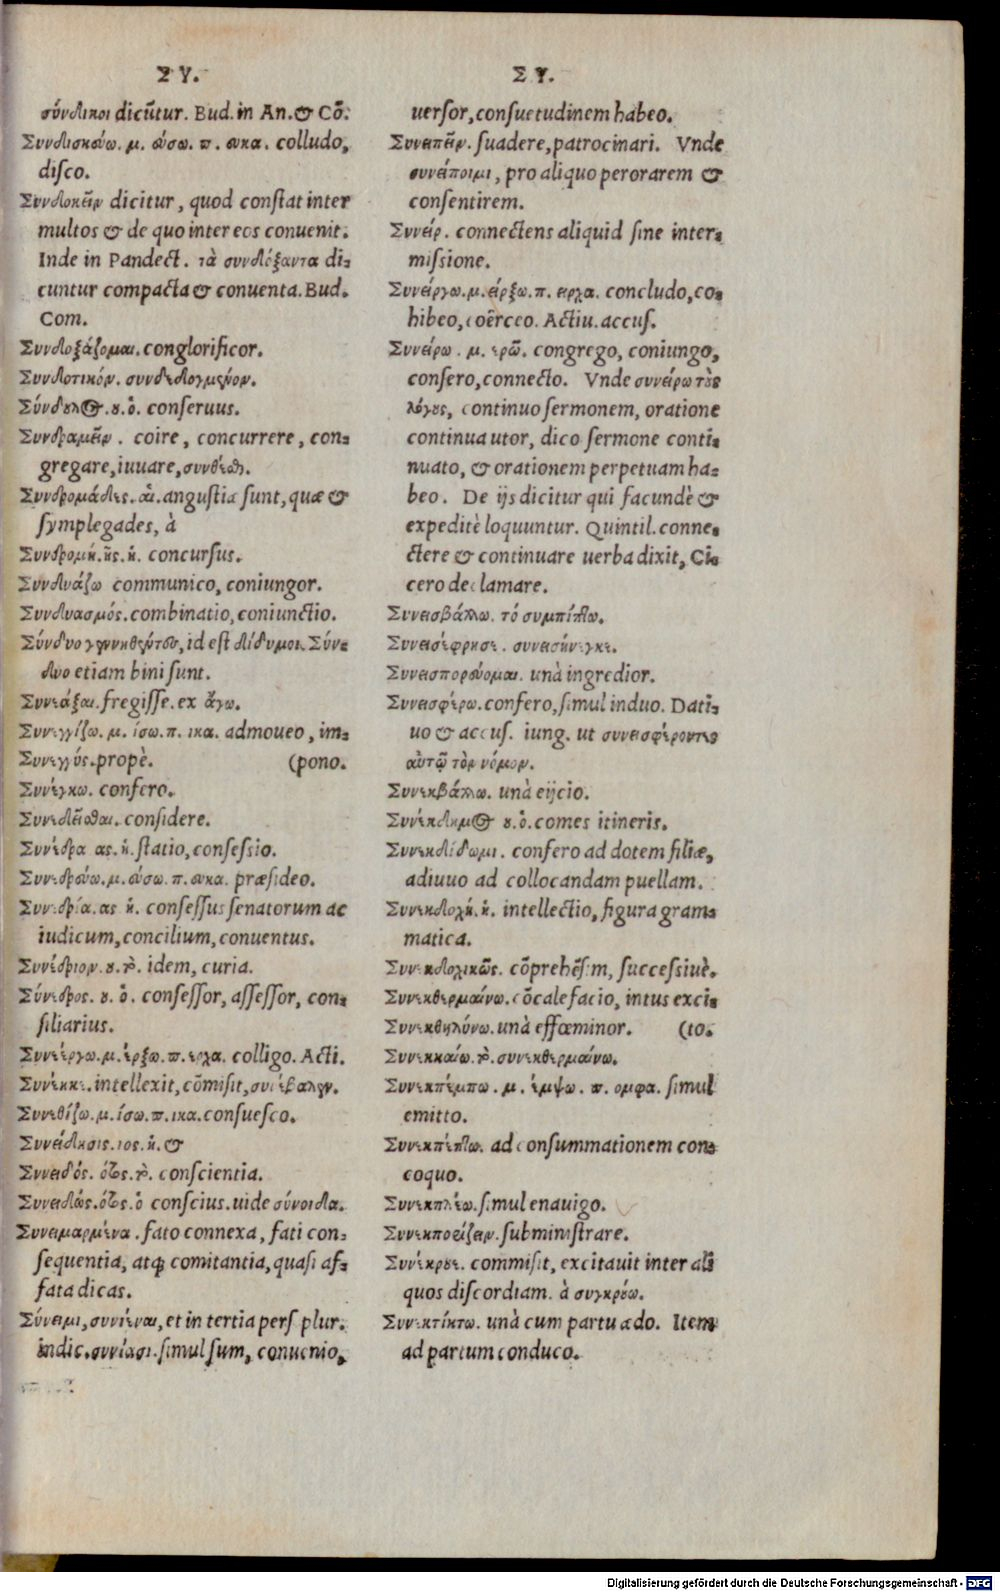 ΣΥ.
σύνδικοι dicūtur. Bud. in An. & Cō.
Συνδισκεύω. μ. εύσω. π. ευκα. colludo,
disco.
Συνδοκεῖν dicitur, quod constat inter
multos & de quo inter eos conuenit.
Inde in Pandect. τὰ συνδόξαντα di-
cuntur compacta & conuenta. Bud.
Com.
Συνδοξάζομαι. conglorificor.
Συνδοτικόν. συνδεδογμένον.
Σύνδουλος. ου. ὁ. conseruus.
Συνδραμεῖν. coire, concurrere, con-
gregare, iuuare, συνθέειν.
Συνδρομάδες. αἱ. angustia sunt, quæ &
symplegades, à
Συνδρομή. ῆς. ἡ. concursus.
Συνδυάζω communico, coniungor.
Συνδυασμός. combinatio, coniunctio.
Σύνδυο γεννηθέντων, id est δίδυμοι. Σύν-
δυο etiam bini sunt.
Συνεάξαι. fregisse. ex ἄγω.
Συνεγγίζω. μ. ίσω. π. ικα. admoueo, im-
Συνεγγύς. propè. (pono.
Συνέγκω. confero.
Συνεδεῖσθαι. considere.
Συνέδρα ας. ἡ. statio, consessio.
Συνεδρεύω. μ. εύσω. π. ευκα. præsideo.
Συνεδρία. ας ἡ. consessus senatorum ac
iudicum, concilium, conuentus.
Συνέδριον. ου. τὸ. idem, curia.
Σύνεδρος. ου. ὁ. consessor, assessor, con-
siliarius.
Συνεέργω. μ. έρξω. π. ερχα. colligo. Acti.
Συνέηκε. intellexit, cōmisit, συνέβαλεν.
Συνεθίζω. μ. ίσω. π. ικα. consuesco.
Συνείδησις. ιος. ἡ. &
Συνειδός. ότος. τὸ. conscientia.
Συνειδώς. ότος. ὁ conscius. uide σύνοιδα.
Συνειμαρμένα. fato connexa, fati con-
sequentia, atq; comitantia, quasi af-
fata dicas.
Σύνειμι, συνιέναι, et in tertia pers plur.
indic. συνίασι. simul sum, conuenio,
ΣΥ.
uersor, consuetudinem habeo.
Συνειπεῖν. suadere, patrocinari. Vnde
συνείποιμι, pro aliquo perorarem &
consentirem.
Συνείρ. connectens aliquid sine inter-
missione.
Συνείργω. μ. είρξω. π. ειρχα. concludo, co-
hibeo, coërceo. Actiu. accus.
Συνείρω. μ. ερῶ. congrego, coniungo,
consero, connecto. Vnde συνείρω τοὺς
λόγους, continuo sermonem, oratione
continua utor, dico sermone conti-
nuato, & orationem perpetuam ha-
beo. De ijs dicitur qui facundè &
expeditè loquuntur. Quintil. conne-
ctere & continuare uerba dixit, Ci-
cero declamare.
Συνεισβάλλω. τό συμπίπτω.
Συνεισέφρησε. συνεισήνεγκε.
Συνεισπορεύομαι. unà ingredior.
Συνεισφέρω. confero, simul induo. Dati-
uo & accus. iung. ut συνεισφέροντες
αὐτῷ τὸν νόμον.
Συνεκβάλλω. unà eijcio.
Συνέκδημος ου. ὁ. comes itineris.
Συνεκδίδωμι. confero ad dotem filiæ,
adiuuo ad collocandam puellam.
Συνεκδοχή. ἡ. intellectio, figura gram-
matica.
Συνεκδοχικῶς. cōprehēsim, successiuè.
Συνεκθερμαίνω. cōcalefacio, intus exci-
Συνεκθηλύνω. unà effœminor. (to.
Συνεκκαίω. τὸ. συνεκθερμαίνω.
Συνεκπέμπω. μ. έμψω. π. ομφα. simul
emitto.
Συνεκπέπτω. ad consummationem con-
coquo.
Συνεκπλέω. simul enauigo.
Συνεκποείζειν. subministrare.
Συνέκρουε. commisit, excitauit inter ali
quos discordiam. à συγκρούω.
Συνεκτίκτω. unà cum partu ædo. Item
ad partum conduco.
Digitalisierung gefördert durch die Deutsche Forschungsgemeinschaft - DFG